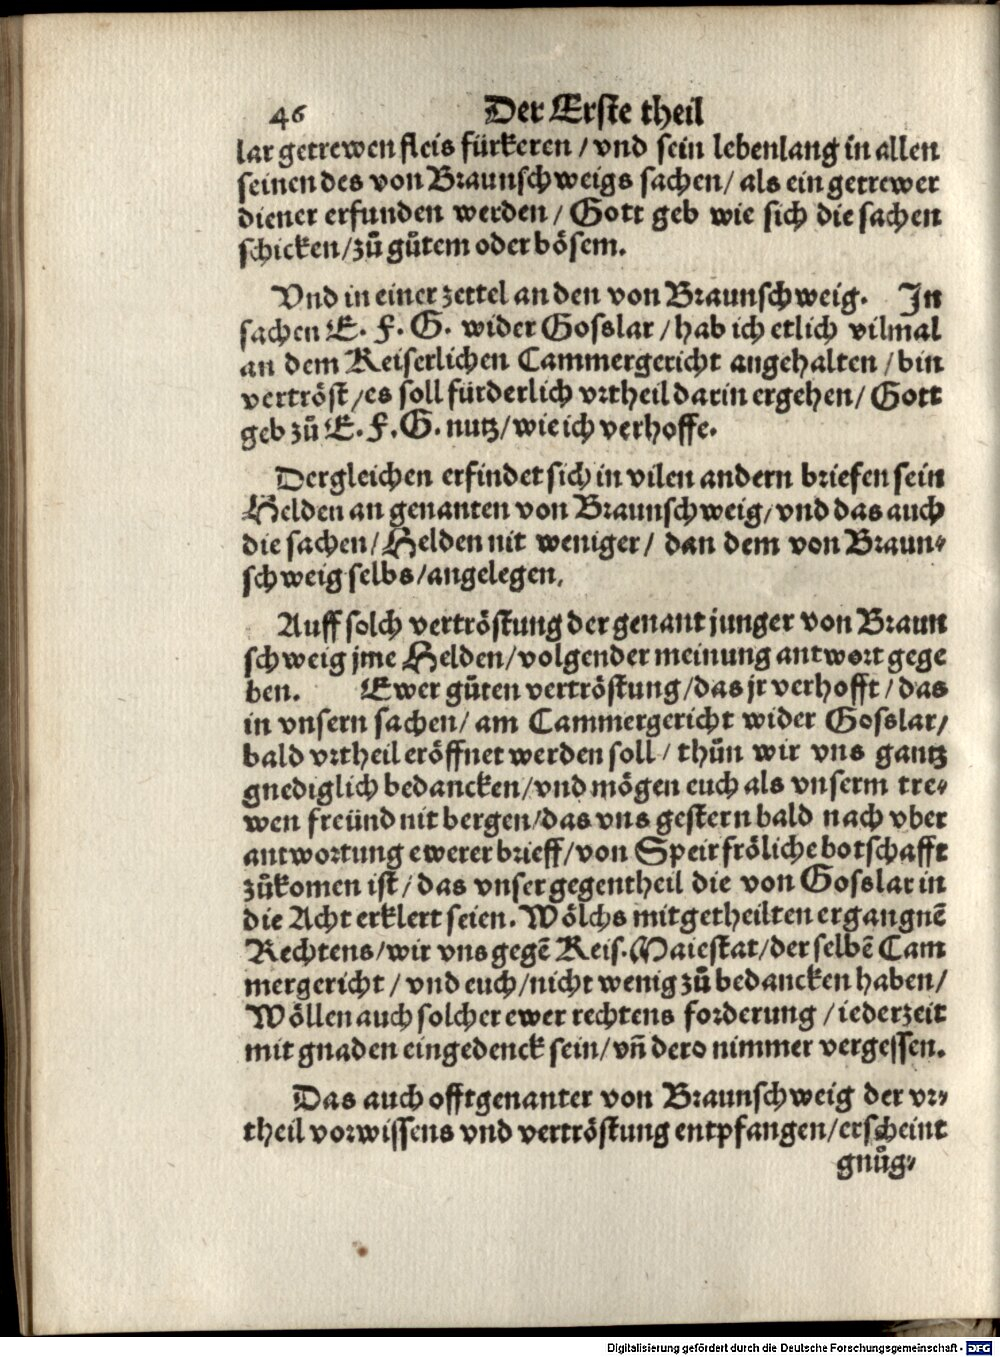 46 Der Erste theil
lar getrewen fleis fürkeren / vnd sein lebenlang in allen
seinen des von Braunschweigs sachen / als ein getrewer
diener erfunden werden / Gott geb wie sich die sachen
schicken / zů gůtem oder bösem.
Vnd in einer zettel an den von Braunschweig. In
sachen E. F. G. wider Gosslar / hab ich etlich vilmal
an dem Keiserlichen Cammergericht angehalten / bin
vertröst / es soll fürderlich vrtheil darin ergehen / Gott
geb zů E. F. G. nutz / wie ich verhoffe.
Dergleichen erfindet sich in vilen andern briefen sein
Helden an genanten von Braunschweig / vnd das auch
die sachen / Helden nit weniger / dan dem von Braun⸗
schweig selbs / angelegen.
Auff solch vertröstung der genant junger von Braun
schweig jme Helden / volgender meinung antwort gege
ben. Ewer gůten vertröstung / das jr verhofft / das
in vnsern sachen / am Cammergericht wider Gosslar /
bald vrtheil eröffnet werden soll / thůn wir vns gantz
gnediglich bedancken / vnd mögen euch als vnserm tre⸗
wen freünd nit bergen / das vns gestern bald nach vber
antwortung ewerer brieff / von Speir fröliche botschafft
zůkomen ist / das vnser gegentheil die von Gosslar in
die Acht erklert seien. Wölchs mitgetheilten ergangnẽ
Rechtens / wir vns gegẽ Keis. Maiestat / der selbẽ Cam
mergericht / vnd euch / nicht wenig zů bedancken haben /
Wöllen auch solcher ewer rechtens forderung / iederzeit
mit gnaden eingedenck sein / vñ dero nimmer vergessen.
Das auch offtgenanter von Braunschweig der vr⸗
theil vorwissens vnd vertröstung entpfangen / erscheint
gnůg⸗
Digitalisierung gefördert durch die Deutsche Forschungsgemeinschaft - DFG